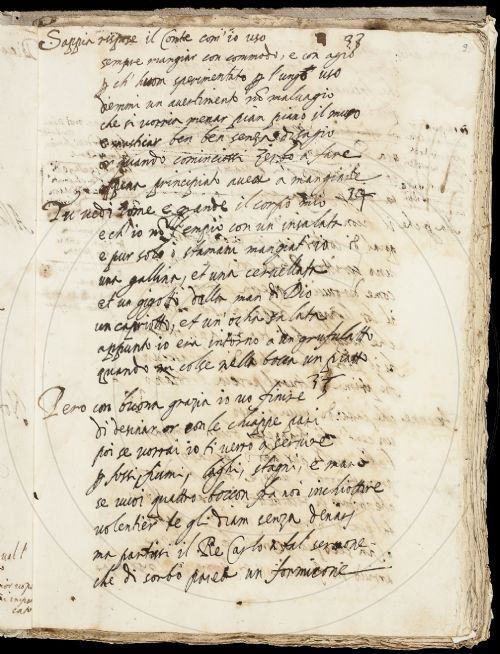 33
9
Sappia rispose il Conte com'io uso
sempre mangiar con commodo, e con agio
p ch' huom sperimentato p lungo uso
diemmi un avertimento nõ malvagio
che si vorria menar pian piano il muso
e masticar ben ben senza disagio
e quando cominciossi Zerbo a fare
a pena principiat' avea a mangiare
34
Tu vedi come e grande il corpo mio
e ch'io nõ l'empio con un' insalata
e pur solo stamani mangiat' io
una gallina, et una cervellata
et un gigotto dalla man di Dio
un capretto, et un' ocha
appunto io era intorno a un
quando mi colse nella bocca un piatto
35
Pero con buona grazia io vo finire
di desinar con le chiappe pari
poi se vorrai io ti verrò a servire
p fossi, fiumi, laghi, stagni, e mari
se vuoi quattro boccon fra noi inghiottire
volentier te gli diam senza denari
ma partissi il Re Carlo a tal sermone
che di sorbo parea un formicone